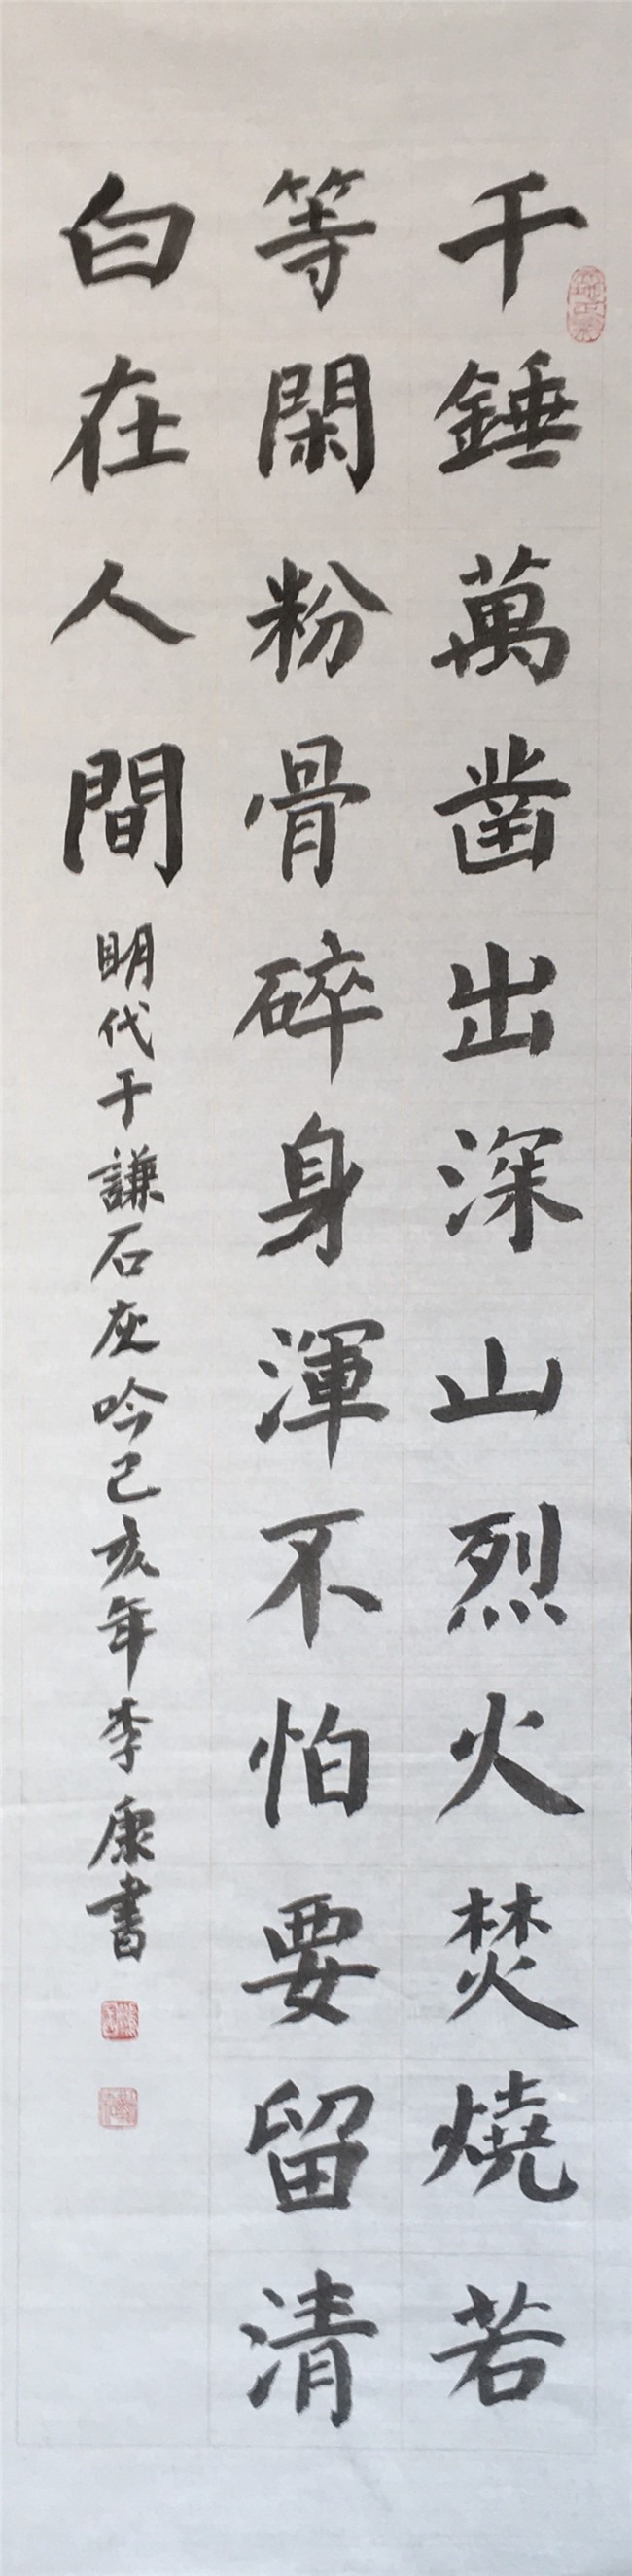 千錘萬凿出深山烈火焚燒若
等閑粉骨碎身渾不怕要留清
白在人間
明代于謙石灰吟己亥年李康書